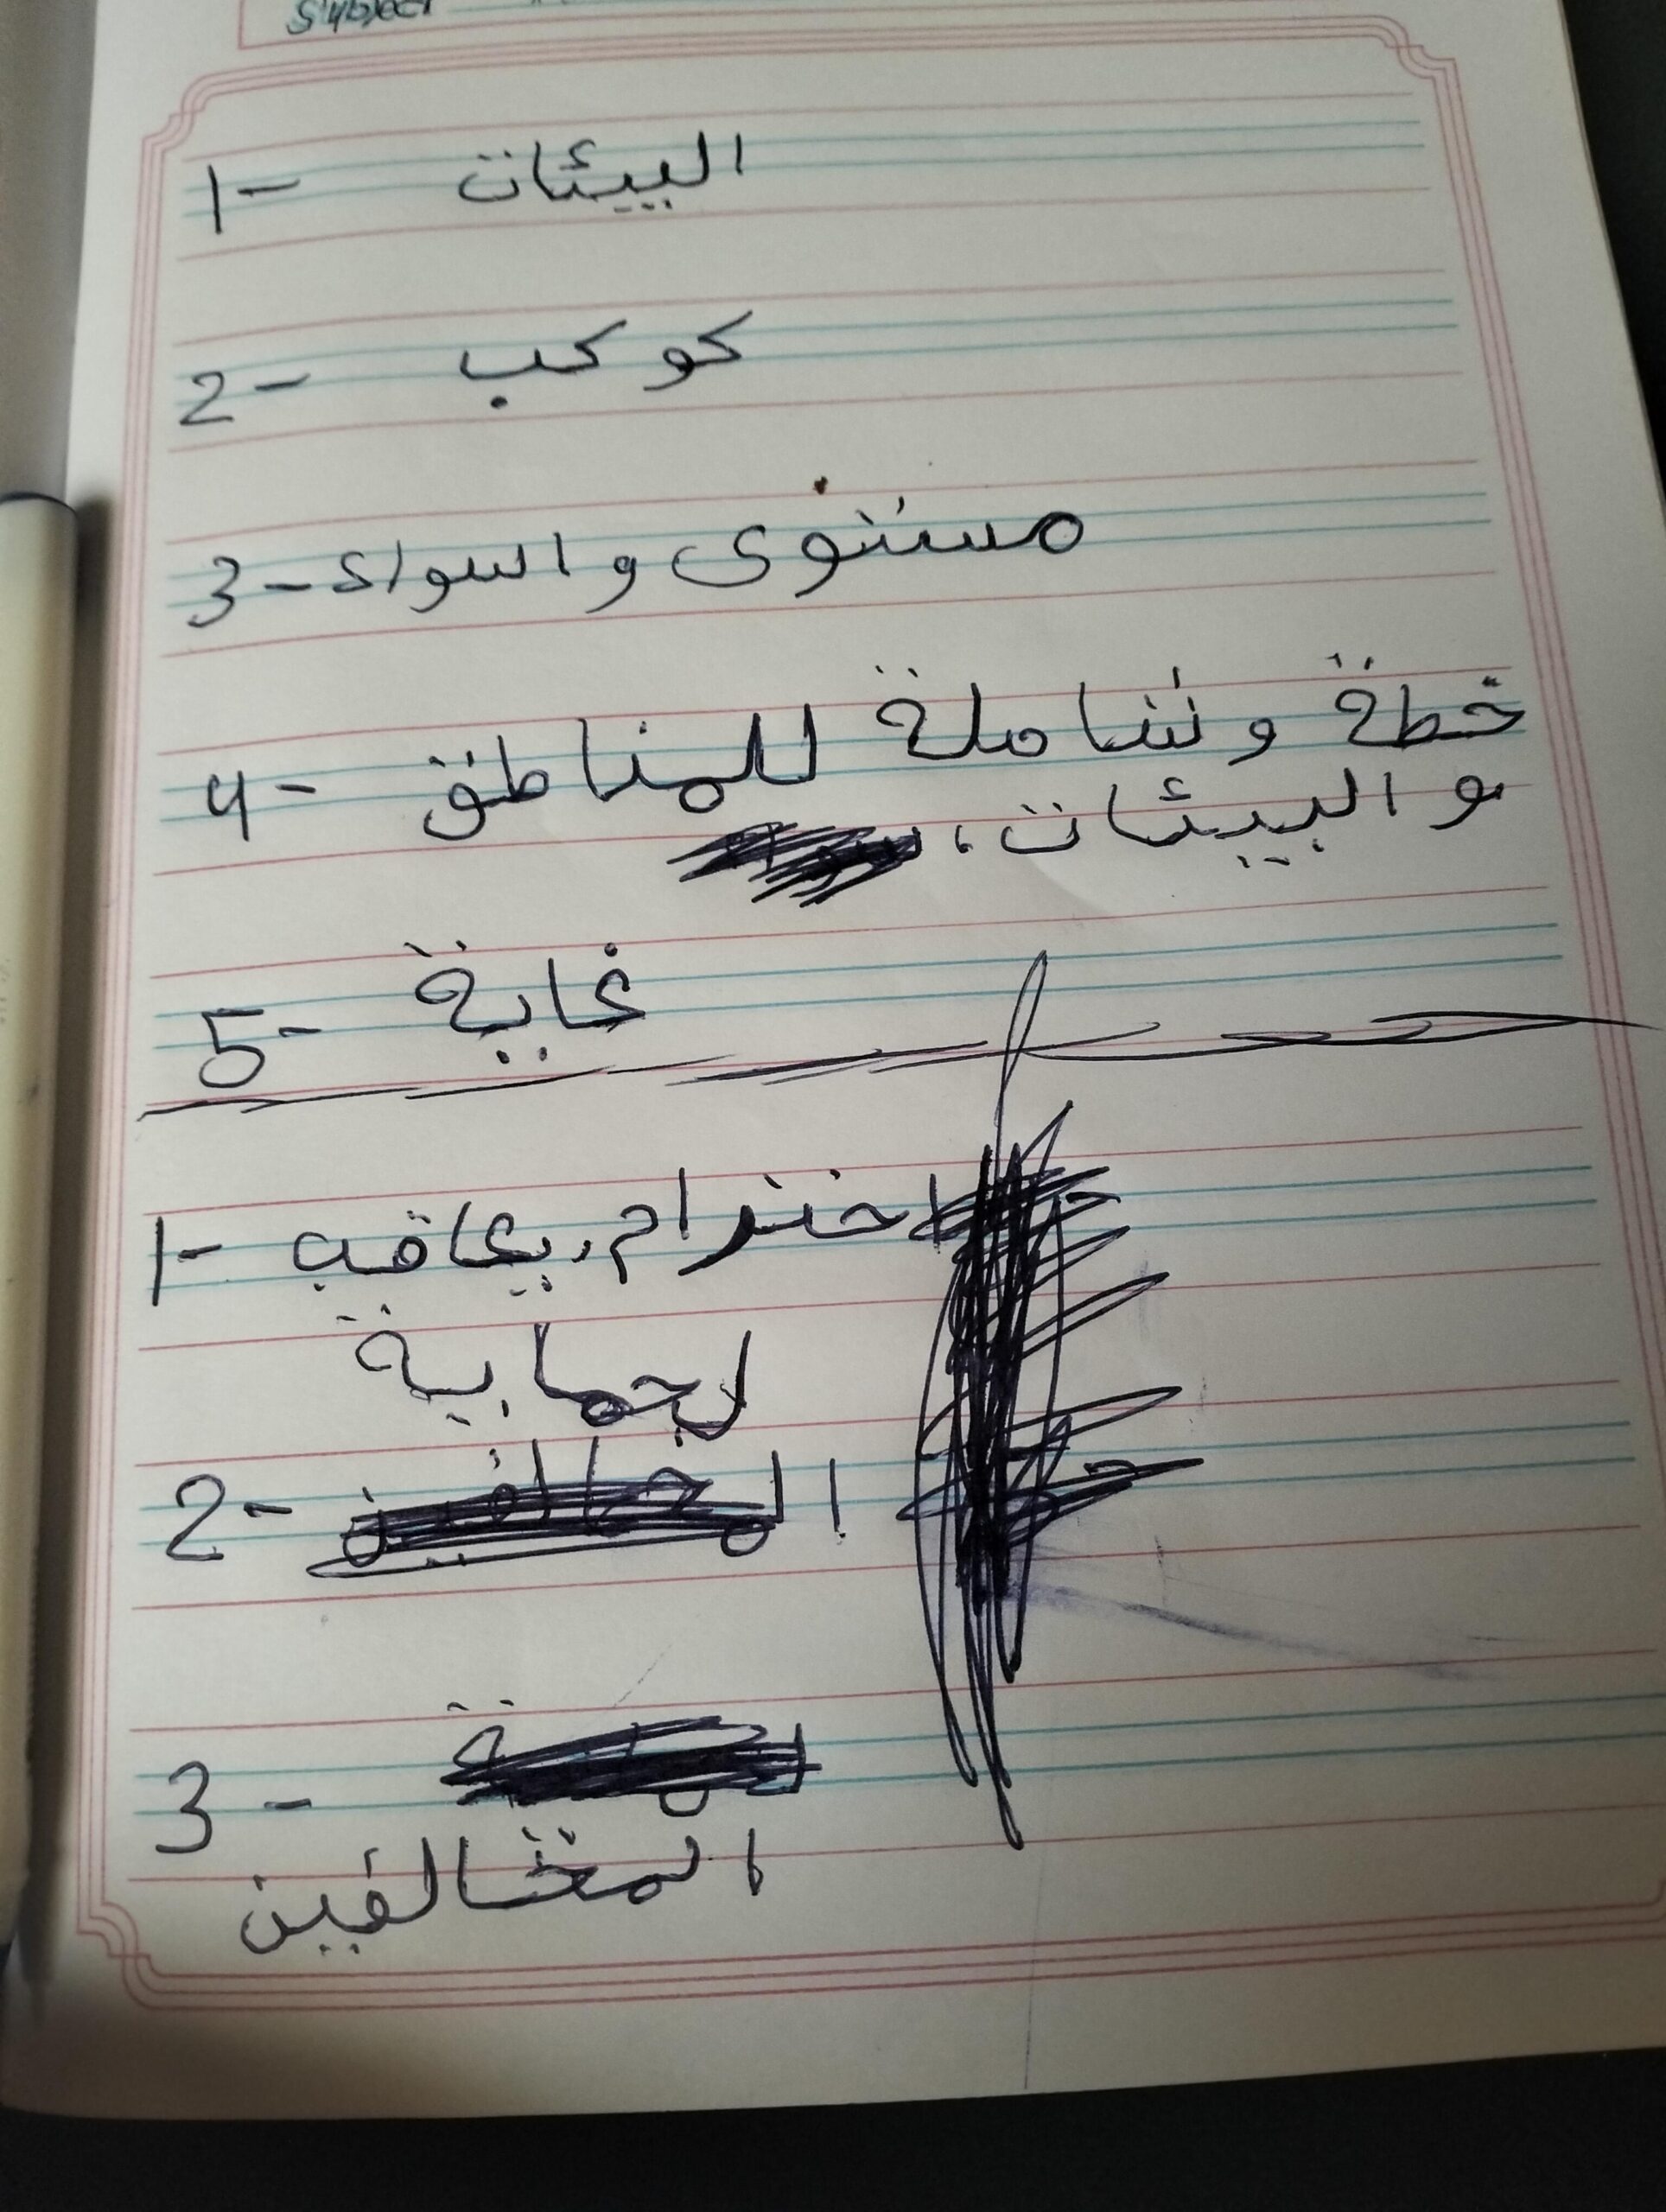 Subject
1- البيئات
2- كوكب
3- مستوى و السواء
4- خطة و شاملة للمناطق
و البيئات،
5- غابة
1- احترام، يعاقب
لحماية
2-
3-
المخالفين